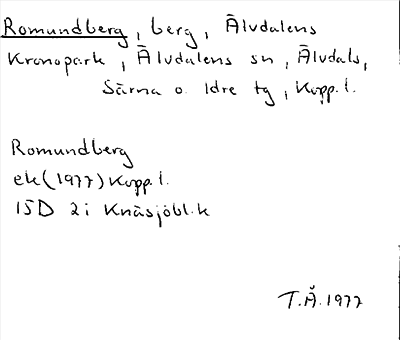 Romundberg, berg, Älvdalens
Kronopark, Älvdalens sn, Älvdals,
Särna o. Idre tg, Kopp. l.
Romundberg
ek (1977) Kopp. l.
15D 2i Knäsjöbl.k
T.Å. 1977